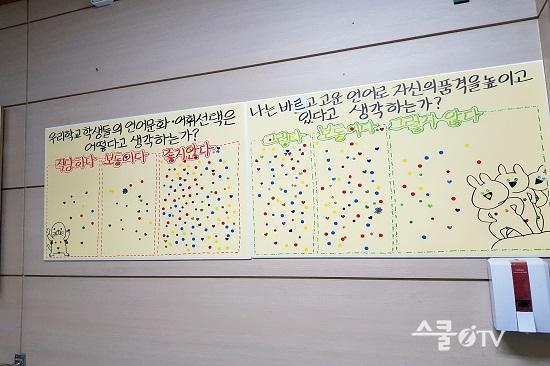 우리학교 학생들의 언어문화·어휘선택은
어떻다고 생각하는가?
적당하다 보통이다 좋지않다
나는 바르고 고운 언어로 자신의 품격을 높이고
있다고 생각하는가?
그렇다 보통이다 그렇지 않다
스쿨iTV